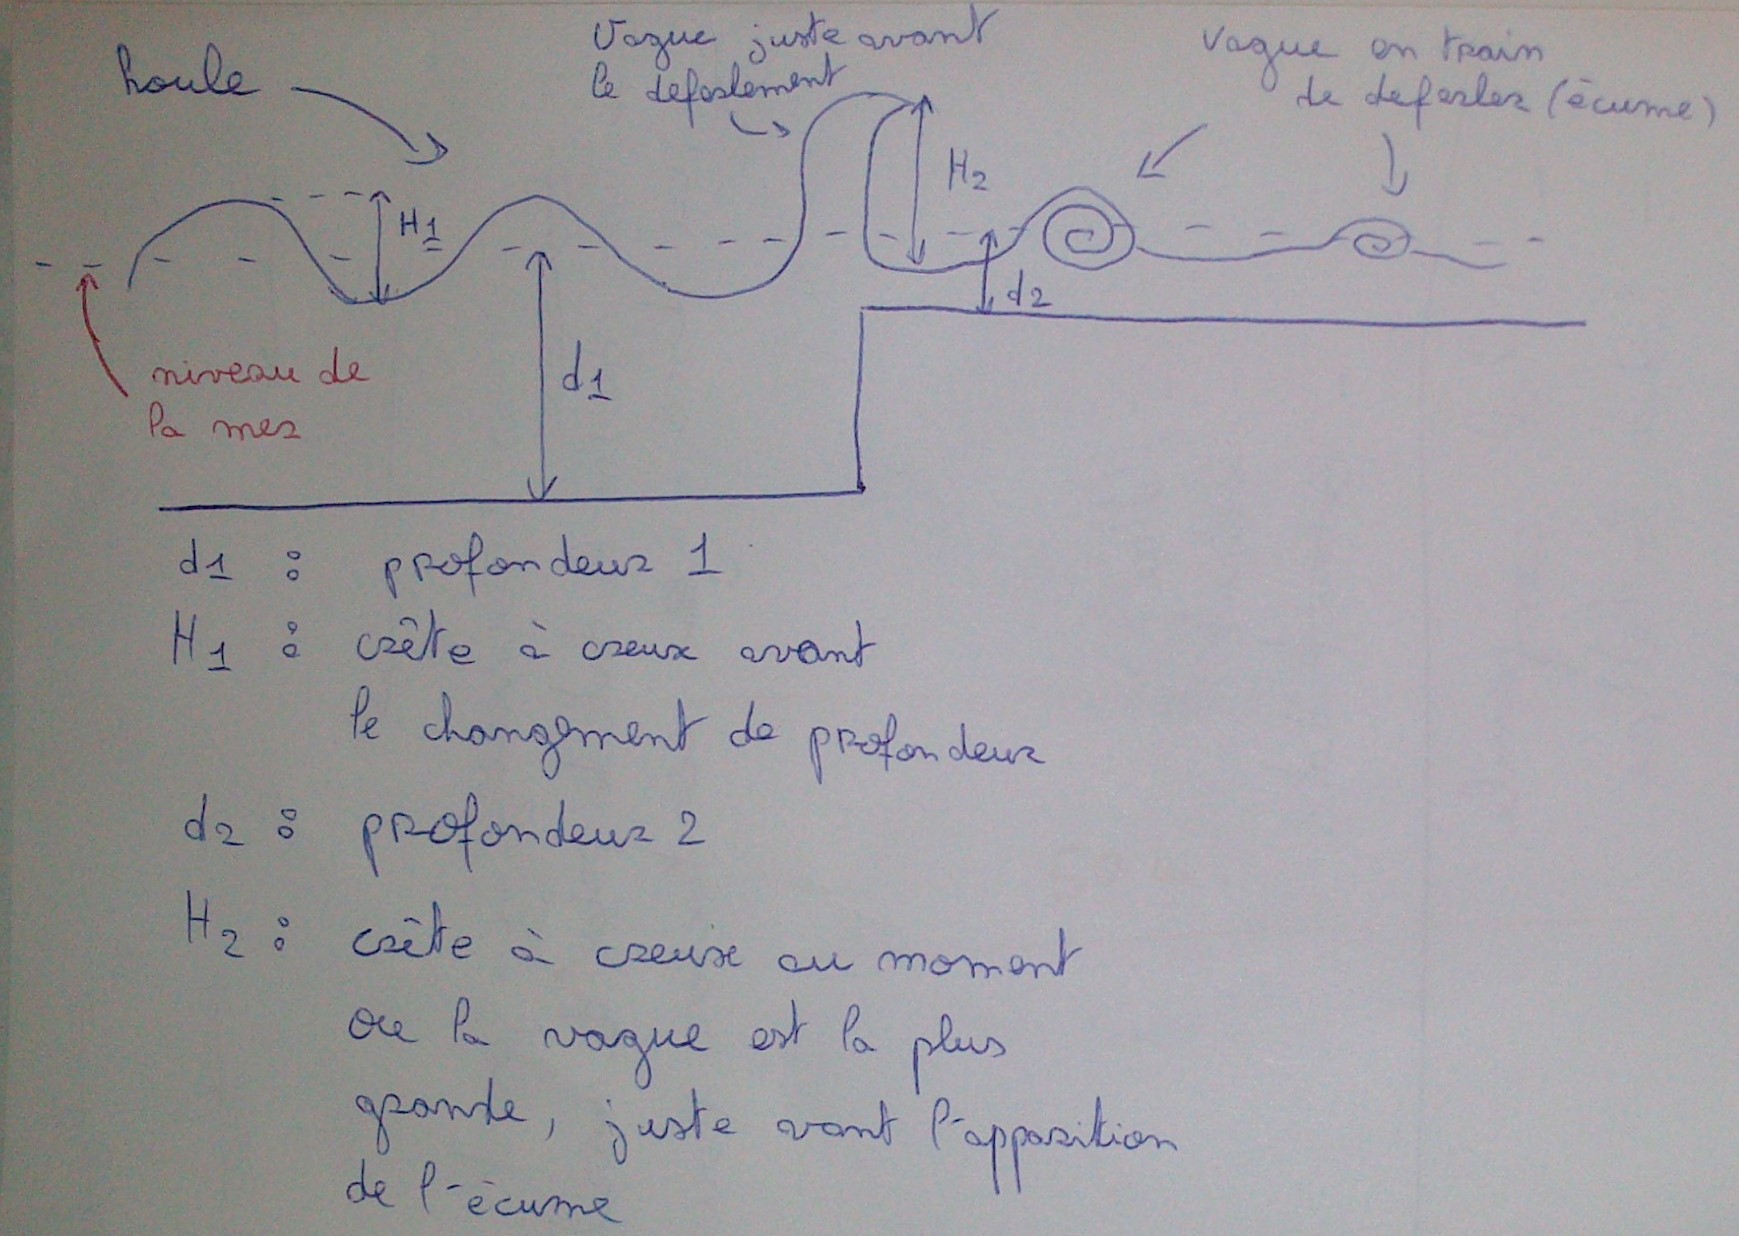 houle
Vague juste avant
le deferlement
Vague en train
de deferler (écume)
H1
H2
d1
d2
niveau de
la mer
d1 : profondeur 1
H1 : crête à creux avant
le changement de profondeur
d2 : profondeur 2
H2 : crête à creux au moment
ou la vague est la plus
grande, juste avant l'apparition
de l'écume